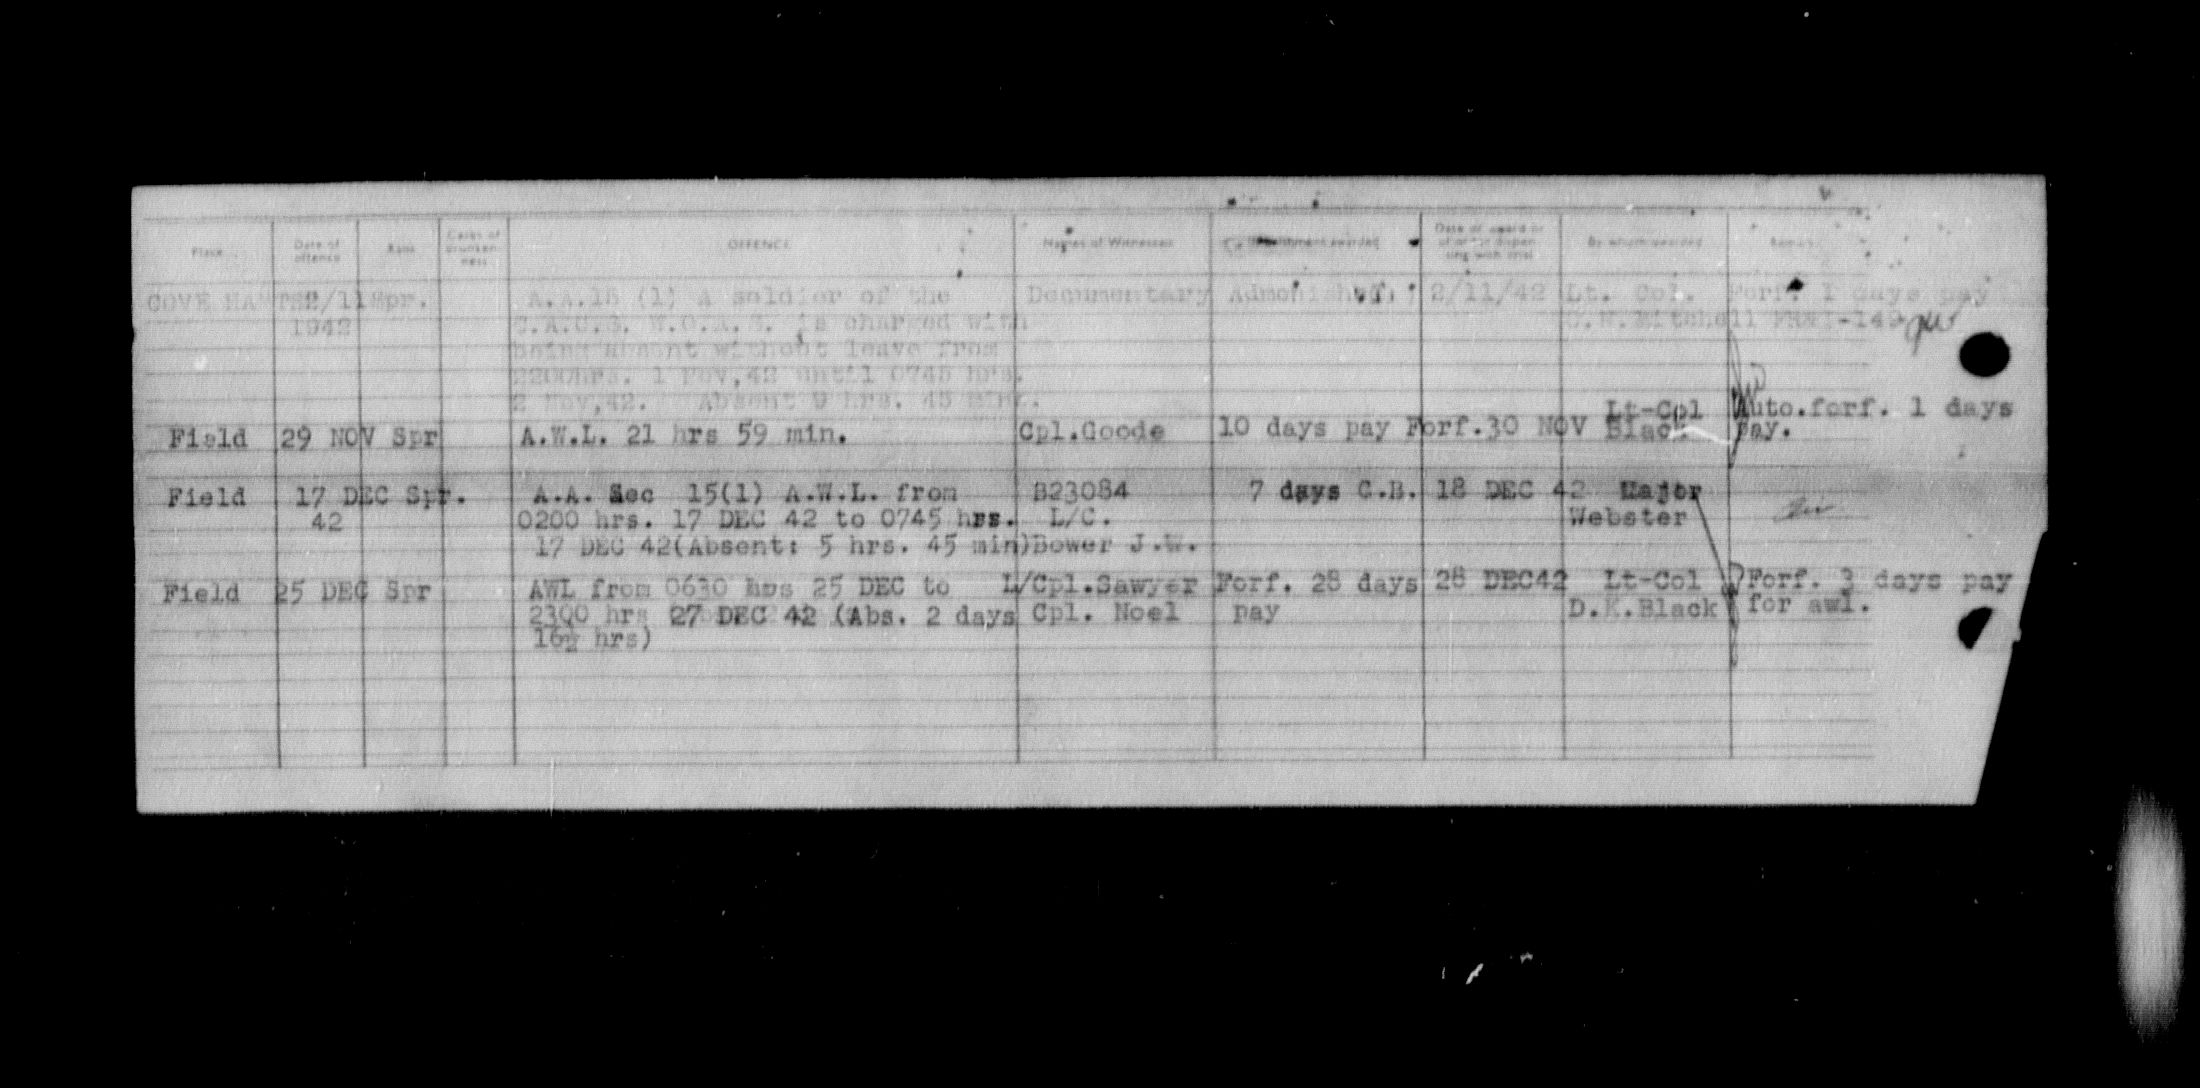 Place Date of offence Rank Cases of drunkenness OFFENCE Names of Witnesses Punishment awarded Date of award or of order dispensing with trial By whom awarded Remarks
COVE HANTS 2/11 Spr. A.A.15 (1) A soldier of the Documentary Admonished 2/11/42 Lt. Col. Forf. 1 days pay
1942 C.A.O.S. is charged with Mitchell
being absent without leave from
2200hrs. 1 Nov,42 until 0745 hrs.
2 Nov,42. Absent 9 hrs. 45 mins.
Lt-Col Auto.forf. 1 days
Field 29 NOV Spr A.W.L. 21 hrs 59 min. Cpl.Goode 10 days pay Forf. 30 NOV Black pay.
Field 17 DEC Spr. A.A. Sec 15(1) A.W.L. from B23084 7 days C.B. 18 DEC 42 Major
42 0200 hrs. 17 DEC 42 to 0745 hrs. L/C. Webster
17 DEC 42(Absent: 5 hrs. 45 min) Bower J.W.
Field 25 DEC Spr AWL from 0630 hrs 25 DEC to L/Cpl.Sawyer Forf. 28 days 28 DEC42 Lt-Col Forf. 3 days pay
2300 hrs 27 DEC 42 (Abs. 2 days Cpl. Noel pay D.K.Black for awl.
16½ hrs)